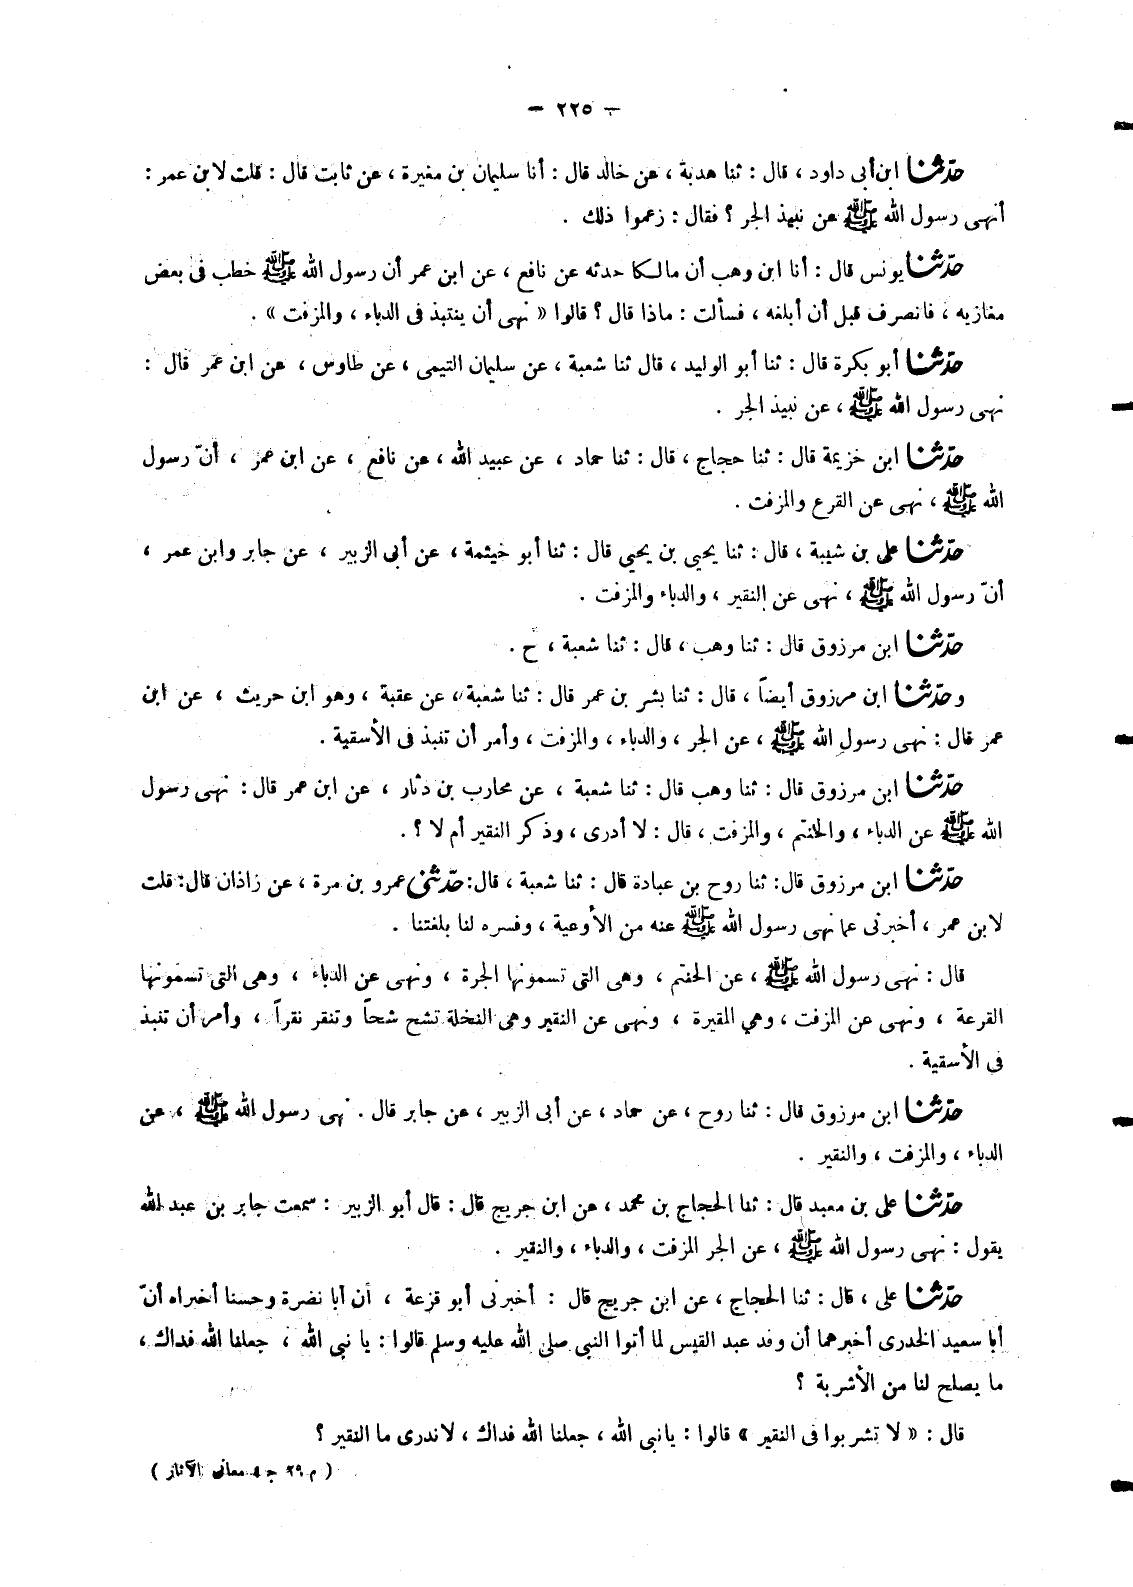 — ٢٢٥ —
حدّثنا ابن أبى داود ، قال : ثنا هدبة ، عن خالد قال : أنا سليمان بن مغيرة ، عن ثابت قال : قلت لابن عمر :
أنهى رسول الله ﷺ عن نبيذ الجر ؟ فقال : زعموا ذلك .
حدّثنا يونس قال : أنا ابن وهب أن مالكا حدثه عن نافع ، عن ابن عمر أن رسول الله ﷺ خطب فى بعض
مغازيه ، فانصرف قبل أن أبلغه ، فسألت : ماذا قال ؟ قالوا « نهى أن ينتبذ فى الدباء ، والمزفت » .
حدّثنا أبو بكرة قال : ثنا أبو الوليد ، قال ثنا شعبة ، عن سليمان التيمى ، عن طاوس ، عن ابن عمر قال :
نهى رسول الله ﷺ ، عن نبيذ الجر .
حدّثنا ابن خزيمة قال : ثنا حجاج ، قال : ثنا حماد ، عن عبيد الله ، عن نافع ، عن ابن عمر ، أنّ رسول
الله ﷺ ، نهى عن القرع والمزفت .
حدّثنا على بن شيبة ، قال : ثنا يحيى بن يحيي قال : ثنا أبو خيثمة ، عن أبى الزبير ، عن جابر وابن عمر ،
أنّ رسول الله ﷺ ، نهى عن النقير ، والدباء والمزفت .
حدّثنا ابن مرزوق قال : ثنا وهب ، قال : ثنا شعبة ، ح .
وحدّثنا ابن مرزوق أيضاً ، قال : ثنا بشر بن عمر قال : ثنا شعبة ، عن عقبة ، وهو ابن حريث ، عن ابن
عمر قال : نهى رسول الله ﷺ ، عن الجر ، والدباء ، والمزفت ، وأمر أن تنبذ فى الأسقية .
حدّثنا ابن مرزوق قال : ثنا وهب قال : ثنا شعبة ، عن محارب بن دثار ، عن ابن عمر قال : نهى رسول
الله ﷺ عن الدباء ، والحنتم ، والمزفت ، قال : لا أدرى ، وذكر النقير أم لا ؟ .
حدّثنا ابن مرزوق قال: ثنا روح بن عبادة قال : ثنا شعبة ، قال: حدّثنى عمرو بن مرة ، عن زاذان قال: قلت
لابن عمر ، أخبرنى عما نهى رسول الله ﷺ عنه من الأوعية ، وفسره لنا بلغتنا .
قال : نهى رسول الله ﷺ ، عن الحنتم ، وهى التى تسمونها الجرة ، ونهى عن الدباء ، وهى التى تسمونها
القرعة ، ونهى عن المزفت ، وهي المقيرة ، ونهى عن النقير وهى النخلة تشح شحاً وتنقر نقراً ، وأمر أن تنبذ
فى الأسقية .
حدّثنا ابن مرزوق قال : ثنا روح ، عن حماد ، عن أبى الزبير ، عن جابر قال . نهى رسول الله ﷺ ، عن
الدباء ، والمزفت ، والنقير .
حدّثنا على بن معبد قال : ثنا الحجاج بن محمد ، عن ابن جريج قال : قال أبو الزبير : سمعت جابر بن عبد الله
يقول : نهى رسول الله ﷺ ، عن الجر المزفت ، والدباء ، والنقير .
حدّثنا على ، قال : ثنا الحجاج ، عن ابن جريج قال : أخبرنى أبو قزعة ، أن أبا نضرة وحسنا أخبراه أنّ
أبا سعيد الخدرى أخبرهما أن وفد عبد القيس لما أتوا النبى صلى الله عليه وسلم قالوا : يا نبى الله ، جعلنا الله فداك ،
ما يصلح لنا من الأشربة ؟
قال : « لا تشربوا فى النقير » قالوا : يا نبى الله ، جعلنا الله فداك ، لا ندرى ما النقير ؟
( م ٢٩ ج ٤ معانى الآثار )